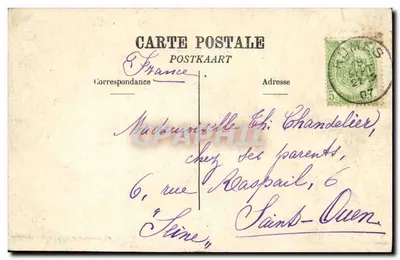 CARTE POSTALE
POSTKAART
(France)
Correspondance
Adresse
Mademoiselle Th. Chandelier,
chez ses parents,
6, rue Raspail, 6
Saint-Ouen
"Seine"
07